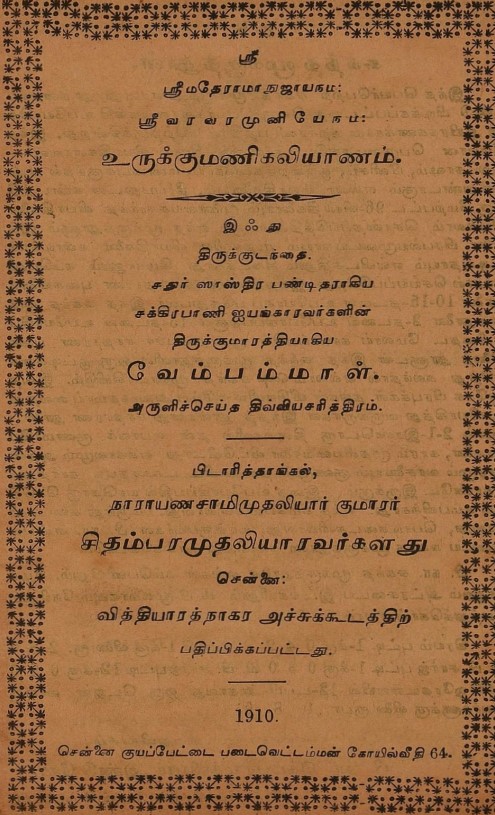 ஸ்ரீ
ஸ்ரீமதேராமாநுஜாயநம:
ஸ்ரீவரவரமுனியேநம:
உருக்குமணிகலியாணம்.
இஃது
திருக்குடந்தை.
சதுர் ஸாஸ்திர பண்டிதராகிய
சக்கிரபாணி ஐயங்காரவர்களின்
திருக்குமாரத்தியாகிய
வேம்பம்மாள்.
அருளிச்செய்த திவ்வியசரித்திரம்.
பிடாரித்தாங்கல்,
நாராயணசாமிமுதலியார் குமாரர்
சிதம்பரமுதலியாரவர்களது
சென்னை:
வித்தியாரத்நாகர அச்சுக்கூடத்திற்
பதிப்பிக்கப்பட்டது.
1910.
சென்னை குயப்பேட்டை படைவெட்டம்மன் கோயில்வீதி 64.